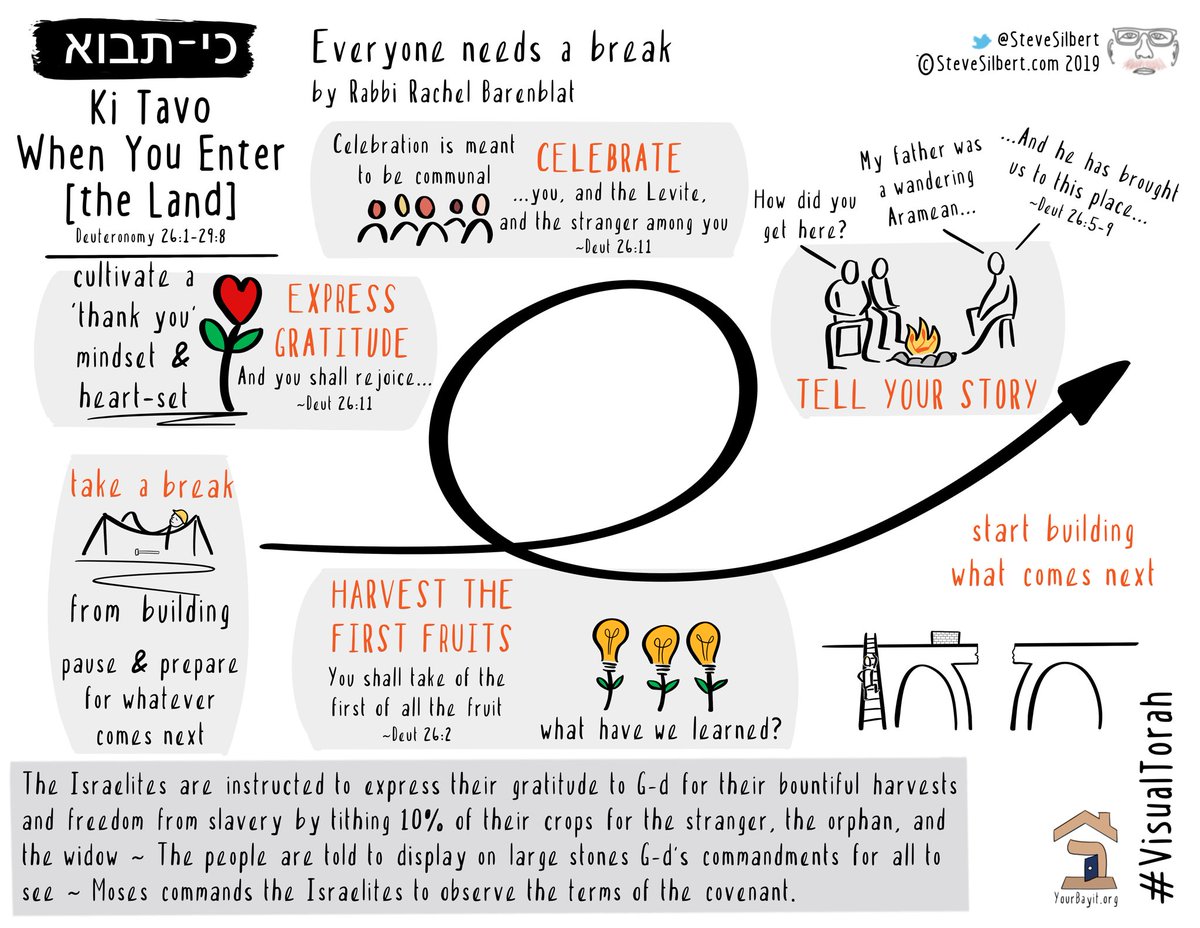 כי-תבוא
Ki Tavo
When You Enter
[the Land]
Deuteronomy 26:1-29:8
Everyone needs a break
by Rabbi Rachel Barenblat
@SteveSilbert
©SteveSilbert.com 2019
take a break
from building
pause & prepare
for whatever
comes next
cultivate a
'thank you'
mindset &
heart-set
EXPRESS
GRATITUDE
And you shall rejoice...
~Deut 26:11
Celebration is meant
to be communal
CELEBRATE
...you, and the Levite,
and the stranger among you
~Deut 26:11
How did you
get here?
My father was
a wandering
Aramean...
...And he has brought
us to this place...
~Deut 26:5-9
TELL YOUR STORY
HARVEST THE
FIRST FRUITS
You shall take of the
first of all the fruit
~Deut 26:2
what have we learned?
start building
what comes next
The Israelites are instructed to express their gratitude to G-d for their bountiful harvests
and freedom from slavery by tithing 10% of their crops for the stranger, the orphan, and
the widow ~ The people are told to display on large stones G-d's commandments for all to
see ~ Moses commands the Israelites to observe the terms of the covenant.
YourBayit.org
#VisualTorah